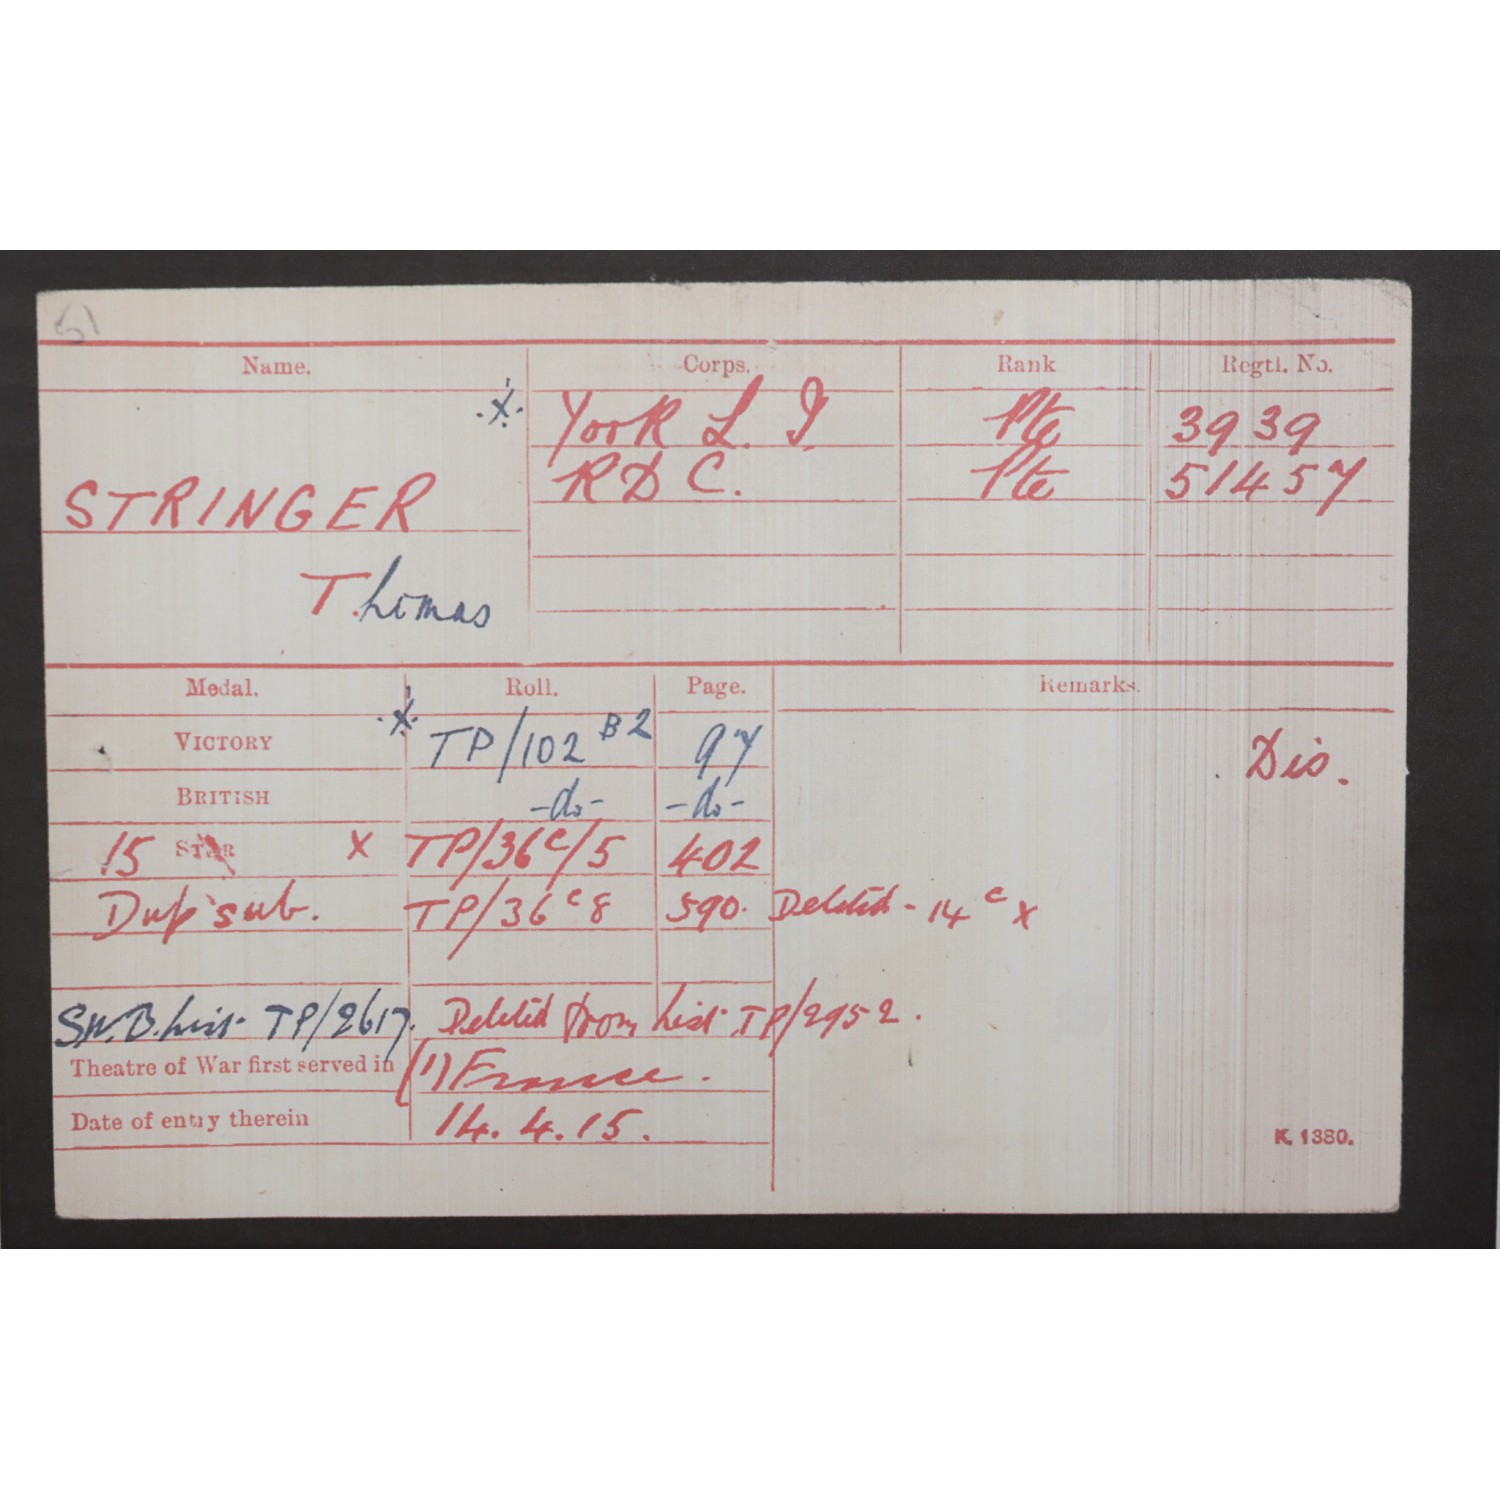 51
Name. Corps. Rank Regtl. No.
.x. York L. I. Pte 3939
STRINGER R D C. Pte 51457
T. homas
Medal. Roll. Page. Remarks.
VICTORY .x. TP/102 B2 97 Dis.
BRITISH -do- -do-
15 STAR x TP/36c/5 402
Dup sub. TP/36 c 8 590. Deleted - 14 c x
S.W.B. List TP/2617. Deleted from List TP/2952.
Theatre of War first served in (1) France.
Date of entry therein 14.4.15.
K. 1380.